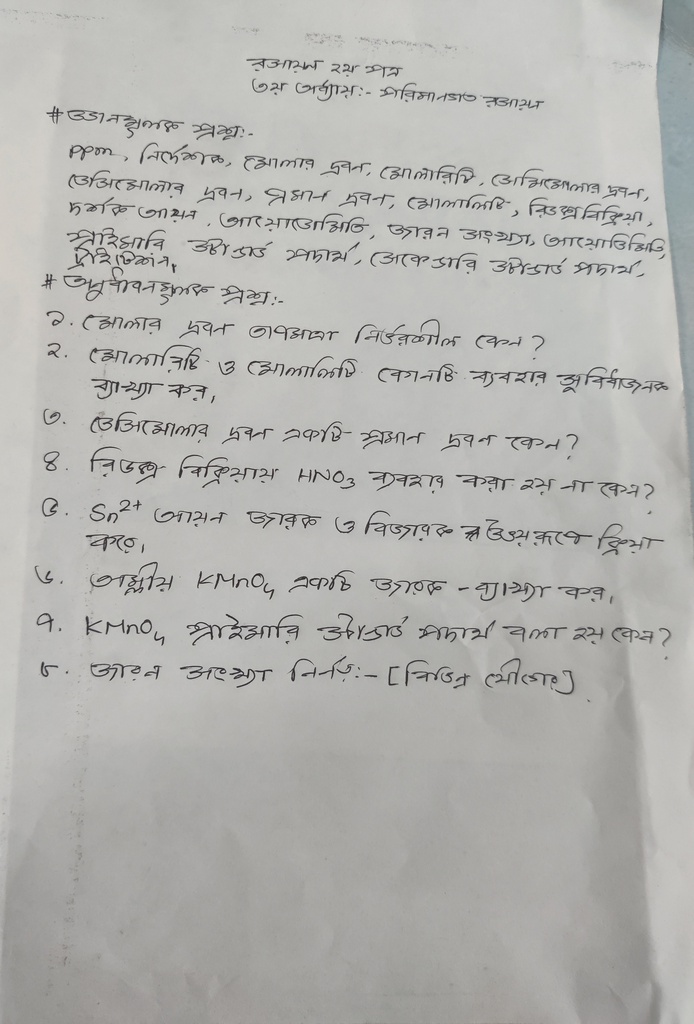 রসায়ন ২য় পত্র
৩য় অধ্যায়:- পরিমানগত রসায়ন
# জ্ঞানমূলক প্রশ্ন:-
ppm, নির্দেশক, মোলার দ্রবন, মোলারিটি, সেমিমোলার দ্রবন,
ডেসিমোলার দ্রবন, প্রমান দ্রবন, মোলালিটি, রিডক্স বিক্রিয়া,
দর্শক আয়ন, আয়োডোমিতি, জারন সংখ্যা, আয়োডিমিতি,
প্রাইমারি স্টান্ডার্ড পদার্থ, সেকেন্ডারি স্টান্ডার্ড পদার্থ,
টাইট্রেশন,
# অনুধাবনমূলক প্রশ্ন:-
১. মোলার দ্রবন তাপমাত্রা নির্ভরশীল কেন?
২. মোলারিটি ও মোলালিটি কোনটি ব্যবহার সুবিধাজনক
ব্যাখ্যা কর,
৩. ডেসিমোলার দ্রবন একটি প্রমান দ্রবন কেন?
৪. রিডক্স বিক্রিয়ায় HNO₃ ব্যবহার করা হয় না কেন?
৫. Sn²⁺ আয়ন জারক ও বিজারক উভয়রূপে ক্রিয়া
করে,
৬. অম্লীয় KMnO₄ একটি জারক - ব্যাখ্যা কর,
৭. KMnO₄ প্রাইমারি স্টান্ডার্ড পদার্থ বলা হয় কেন?
৮. জারন সংখ্যা নির্নয়:- [বিভিন্ন যৌগের]